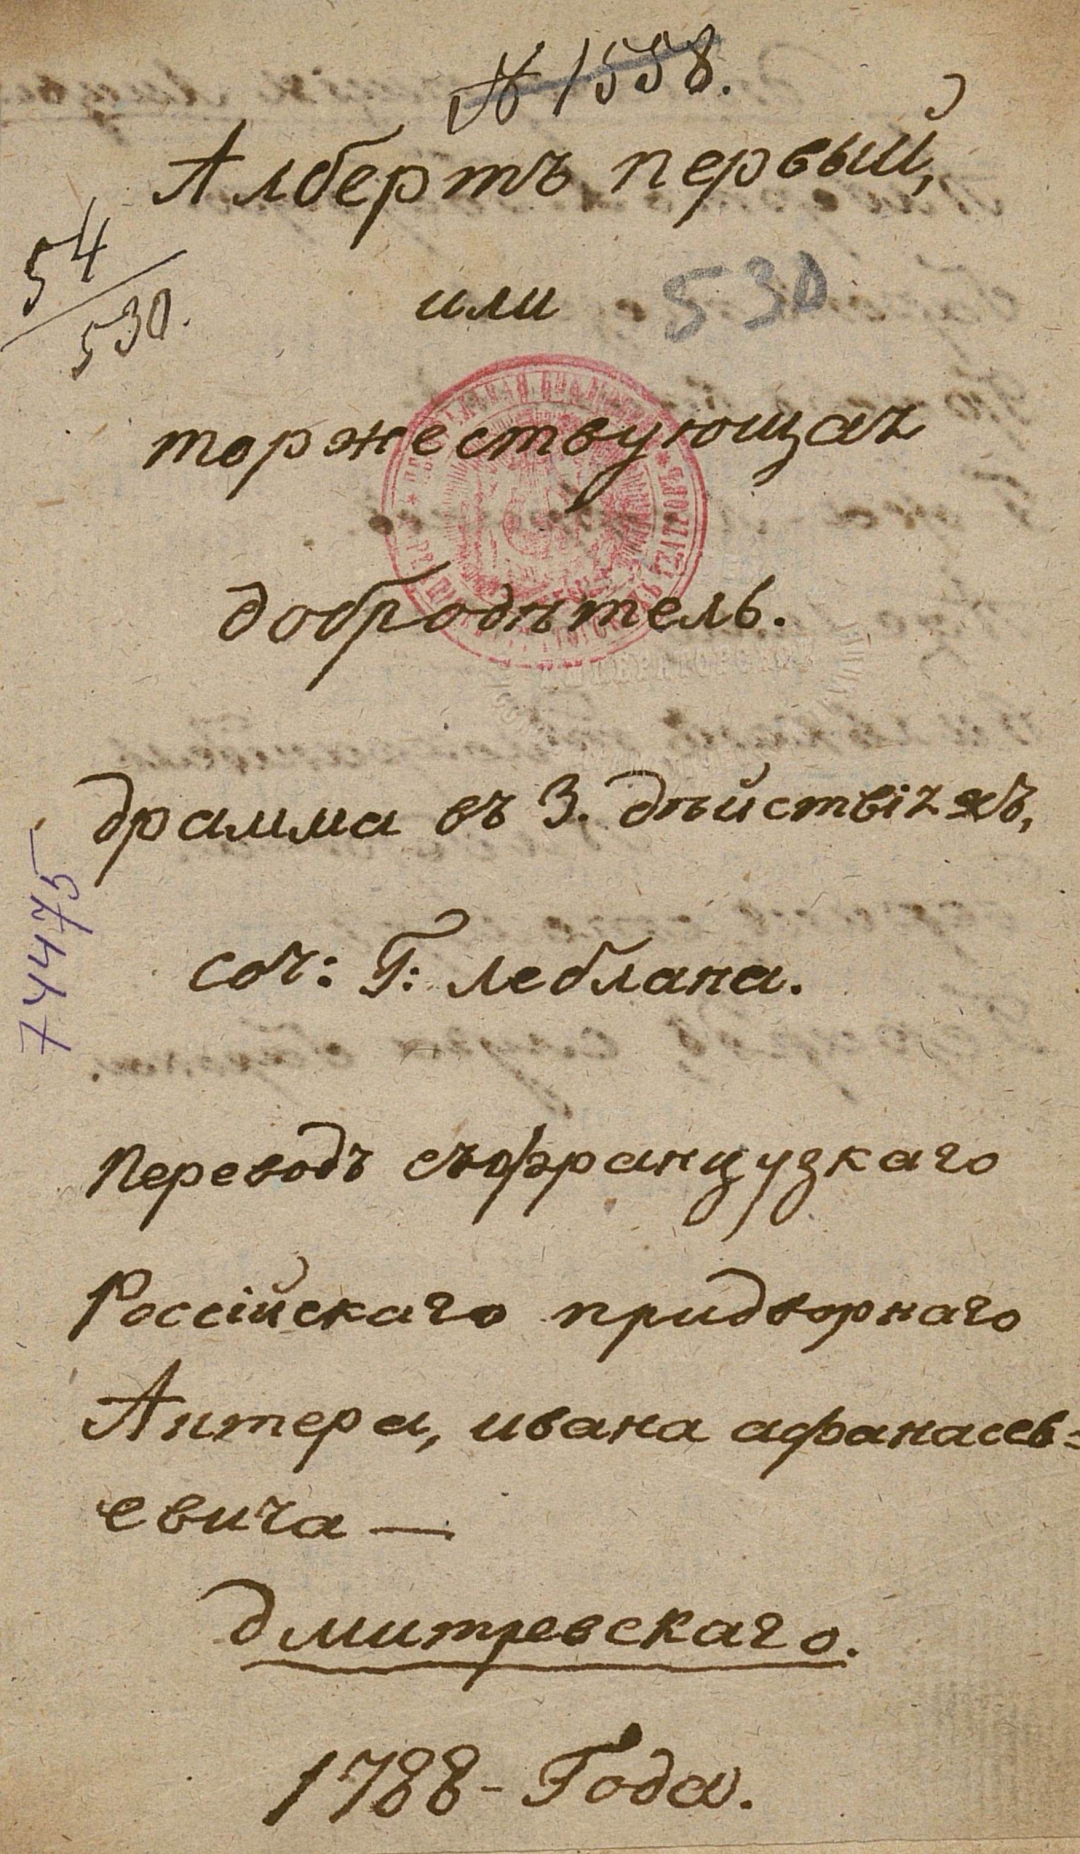 № 1558.
Албертъ первый,
54
530.
или
530
торжествующая
добродѣтель.
драмма въ 3. дѣйствіяхъ,
соч: Г: Леблана.
74475
переводъ съфранцузкаго
Россійскаго придворнаго
Актера, ивана афанасев=
евича —
дмитревскаго.
1788 - Года.